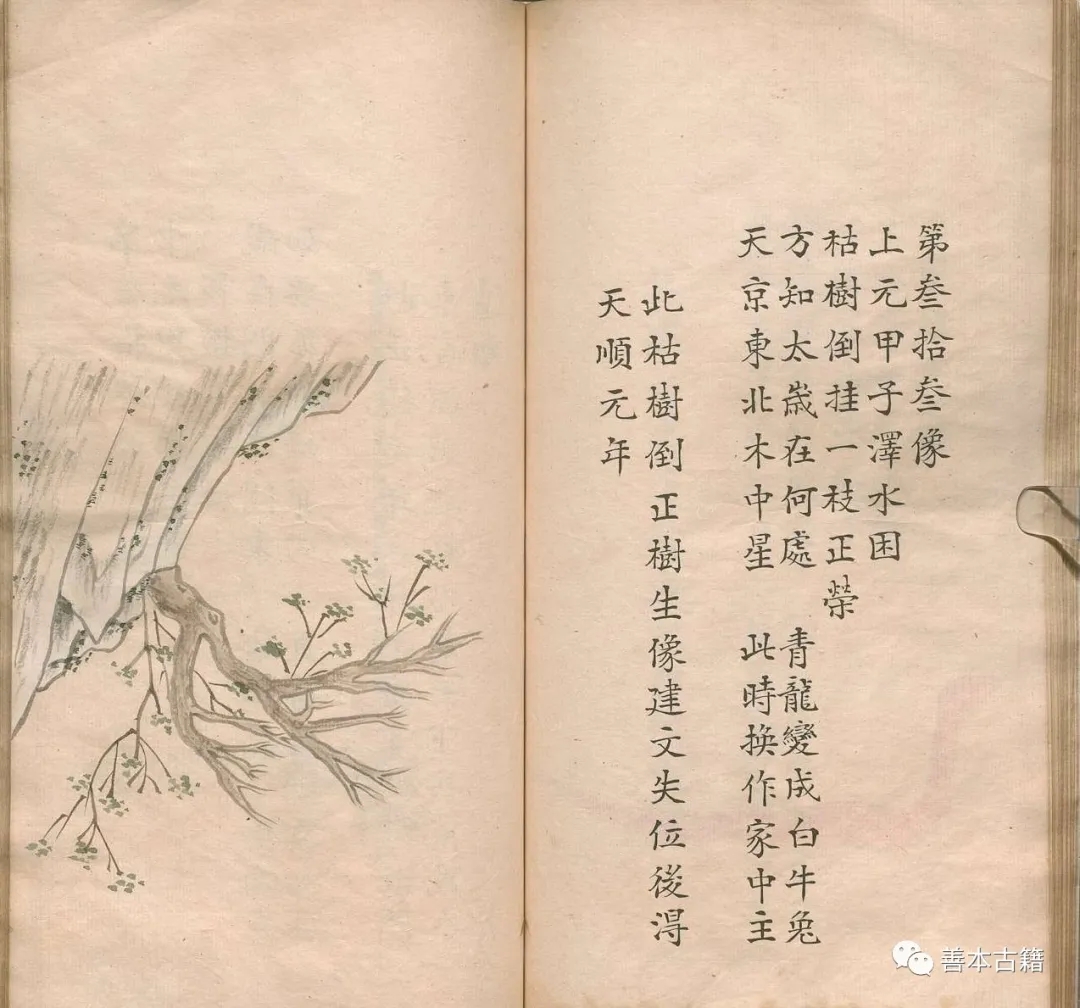 第叁拾叁像
上元甲子澤水困
枯樹倒挂一枝正榮
方知太歲在何處 青龍變成白牛兔
天京東北木中星 此時換作家中主
此枯樹倒正樹生像建文失位後淂
天順元年
善本古籍